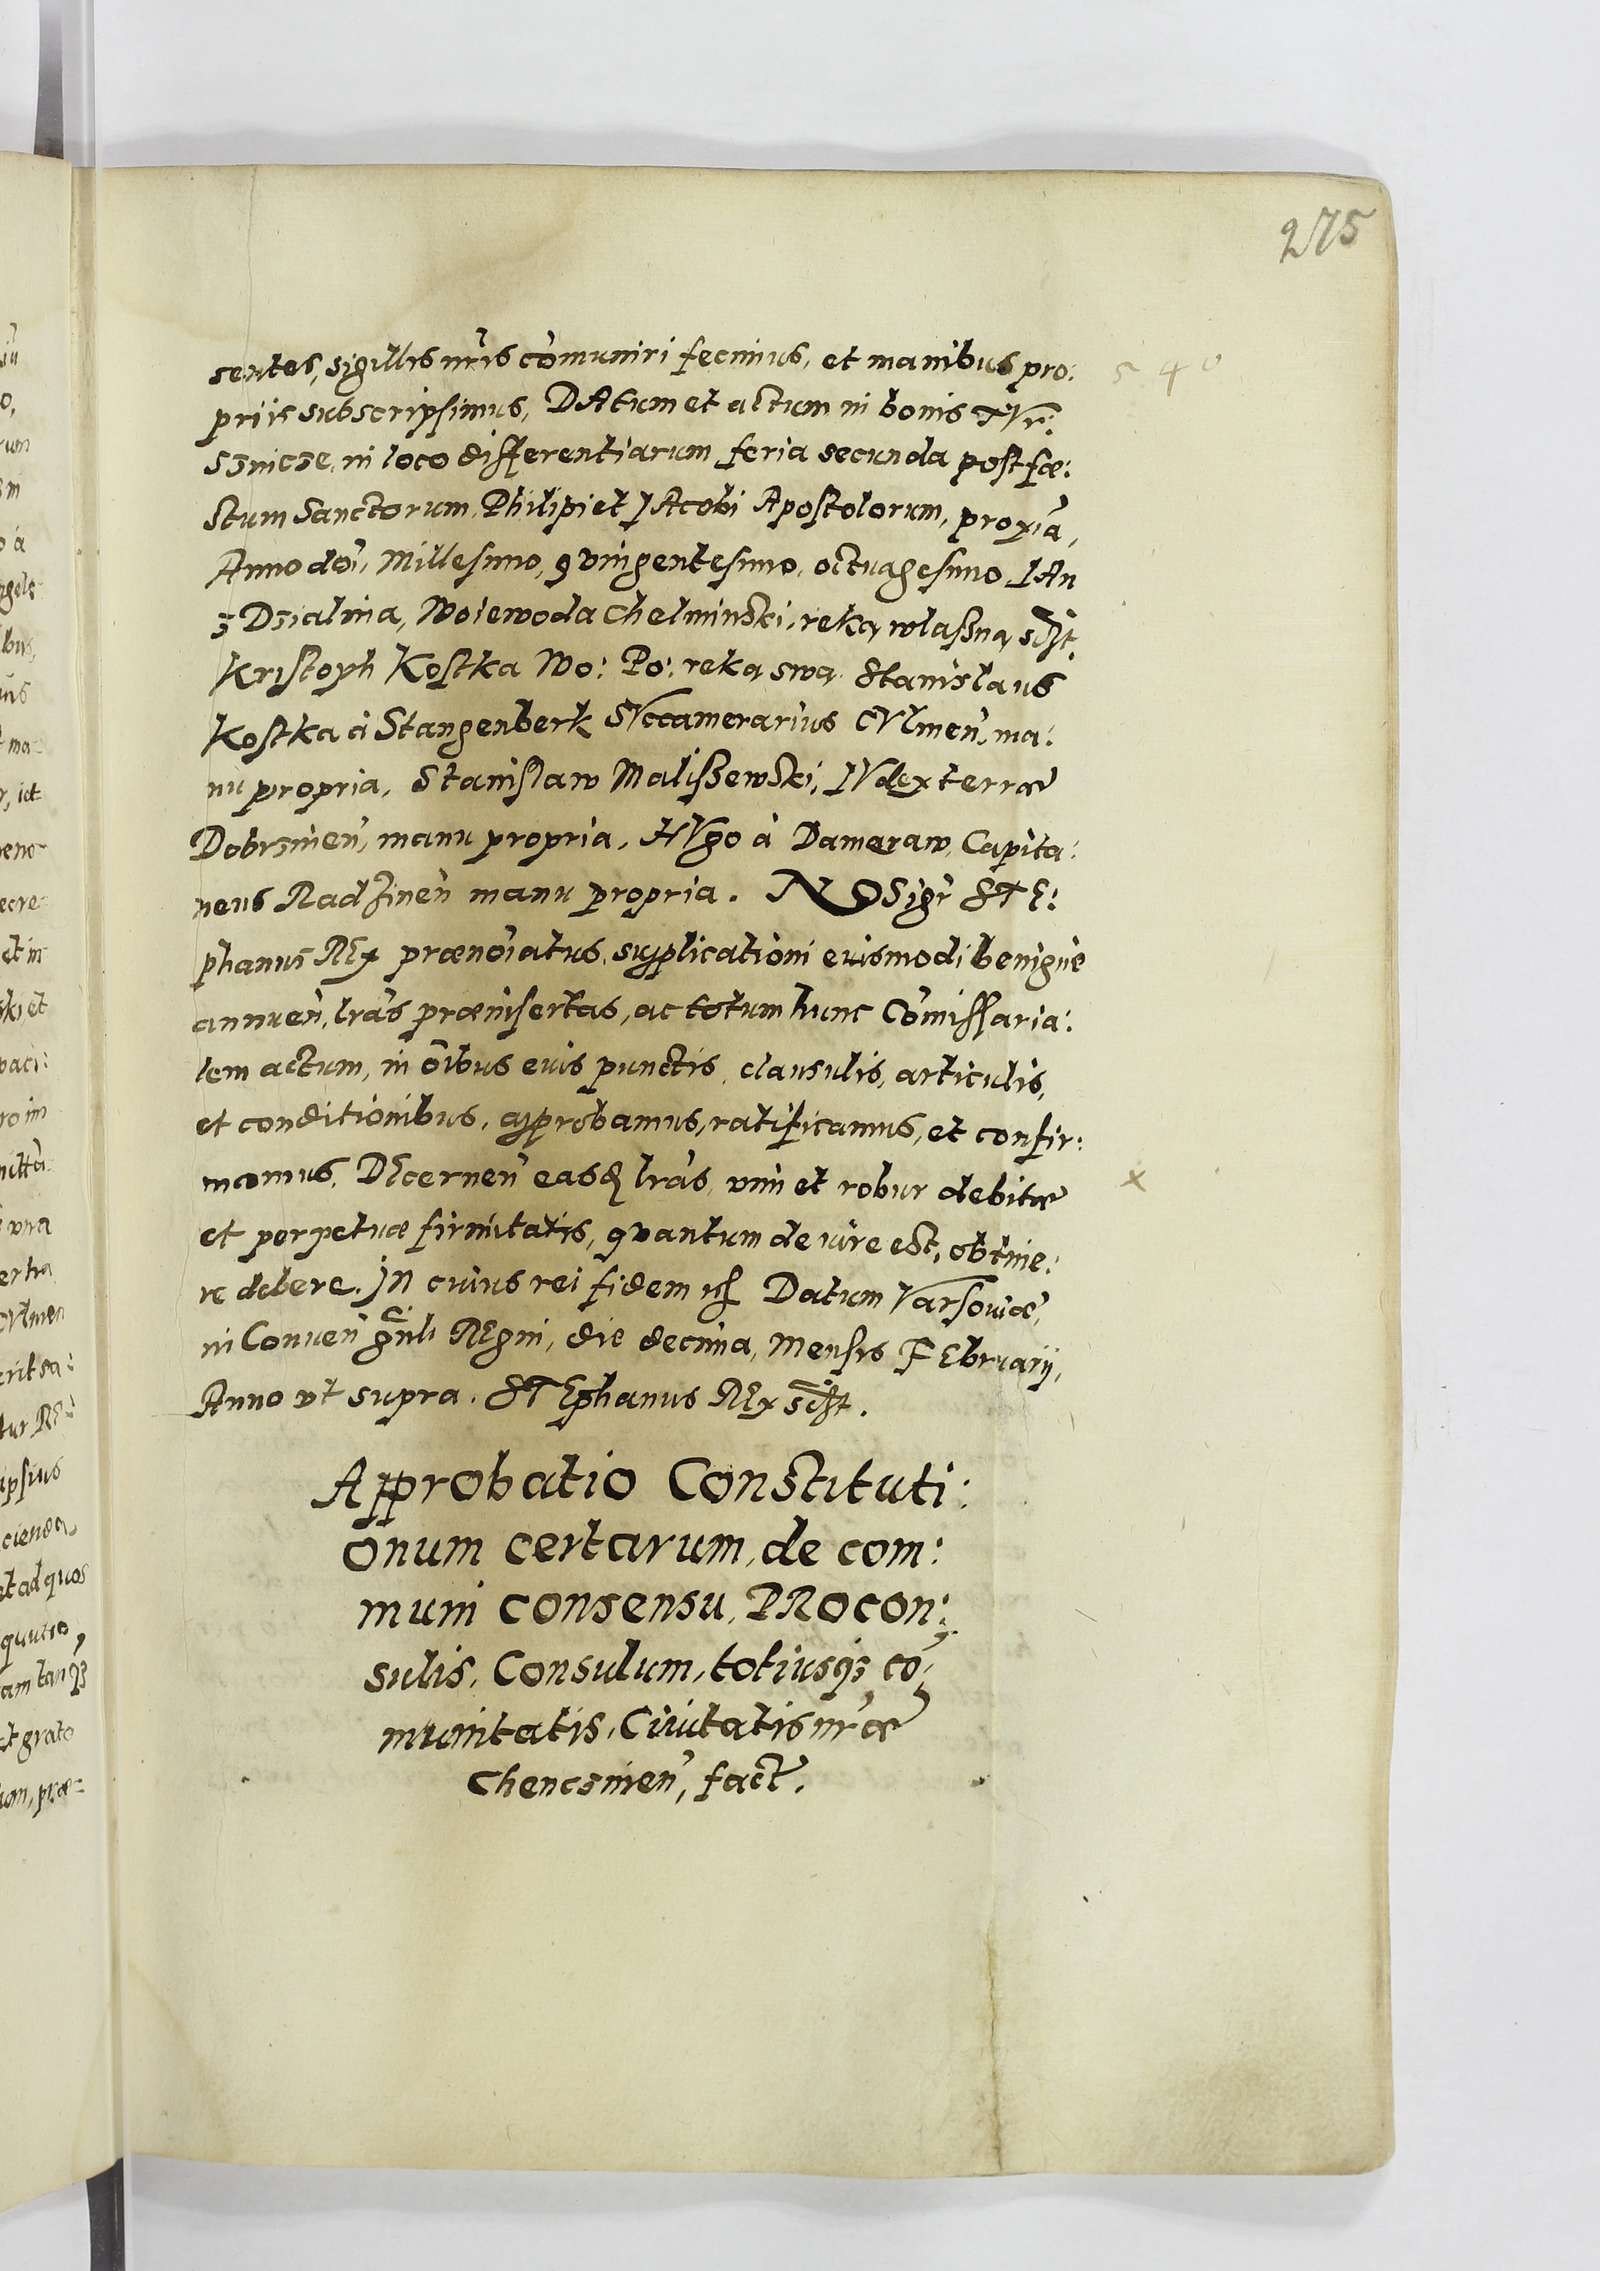 275
sentes, sigillis nr̃is cõmuniri fecimus, et manibus pro:
priis subscripsimus, DAtum et actum in bonis TVr:
sznicze, in loco differentiarum feria secunda post fæ:
stum Sanctorum Philipi et JAcobi Apostolorum, proxĩa,
Anno doĩ, Millesimo, qvingentesimo, octuagesimo, JAn
z Dzialina, Woiewoda Chelminski, reką wlaßną sßt.
Kristoph Kostka Wo: Po: reką swą. Stanislaus
Kostka à Stangenberk SVccamerarius CVlmeñ, ma:
nu propria, Stanisław Malißewski, JVdex terræ
Dobrzineñ, manu propria, HVgo à Dameraw, Capita:
neus Radzineñ manu propria. NOS igr̃ STE:
phanus REx prænoĩatus, supplicationi eiusmodi benigne
annueñ, lr̃as præinsertas, ac totum hunc Cõmissaria:
lem actum, in oĩbus eius punctis, clausulis, articulis,
et conditionibus, approbamus, ratificamus, et confir:
mamus, DEcerneñ easdꝫ lr̃as, vim et robur debitæ
et perpetuæ firmitatis, qvantum de iure est, obtine:
re debere. JN cuius rei fidem
Datum Varsouiæ,
in Conueñ gñli REgni, die decima, Mensis FEbruarij,
Anno vt supra. STEphanus REx sßt.
Approbatio Constituti:
onum certarum, de com:
muni consensu, PROcon:
sulis, Consulum, totiusqꝫ cõ:
munitatis, Ciuitatis nr̃æ
Chencinieñ, fact.